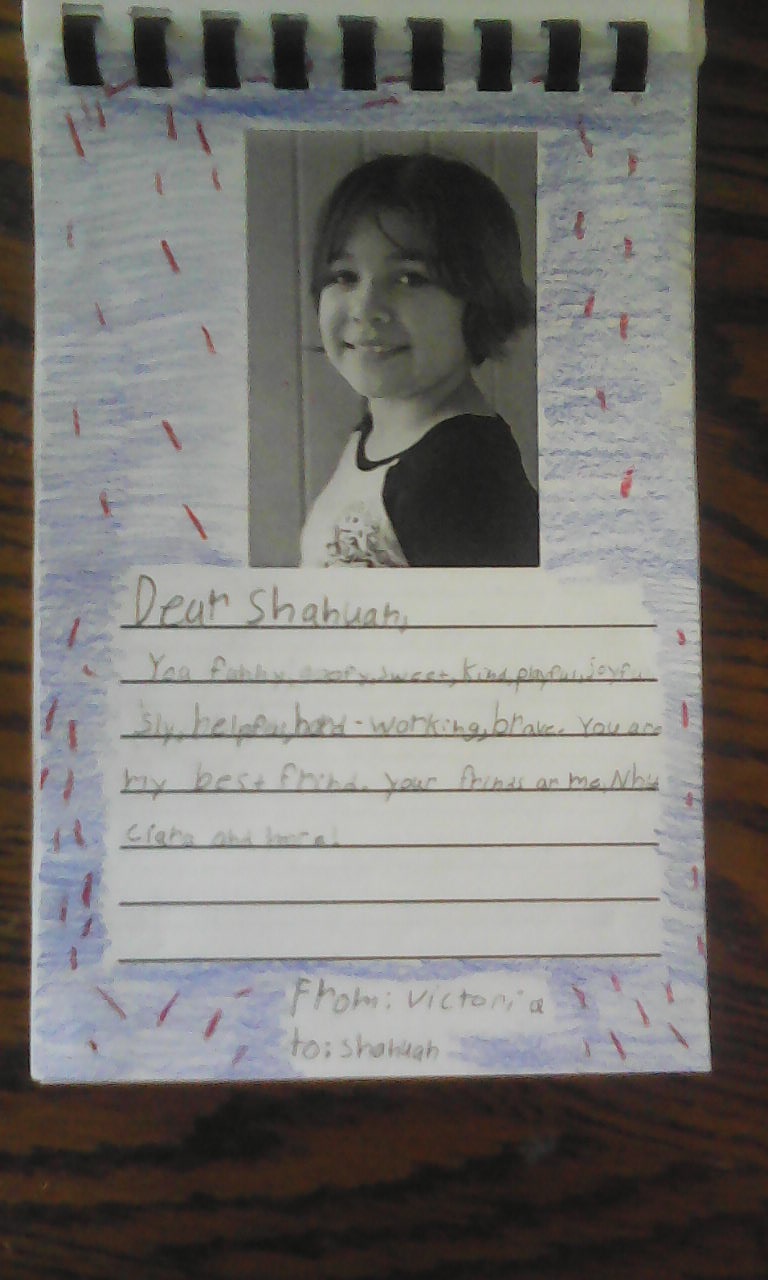 Dear Shanuah,
You fanny, goofy, sweet, kind, playful, joyful
Sly, helpful, hard-working, brave. You are
my best frind. your frinds ar me, Nhu
Ciara and
From: Victoria
to: Shanuah